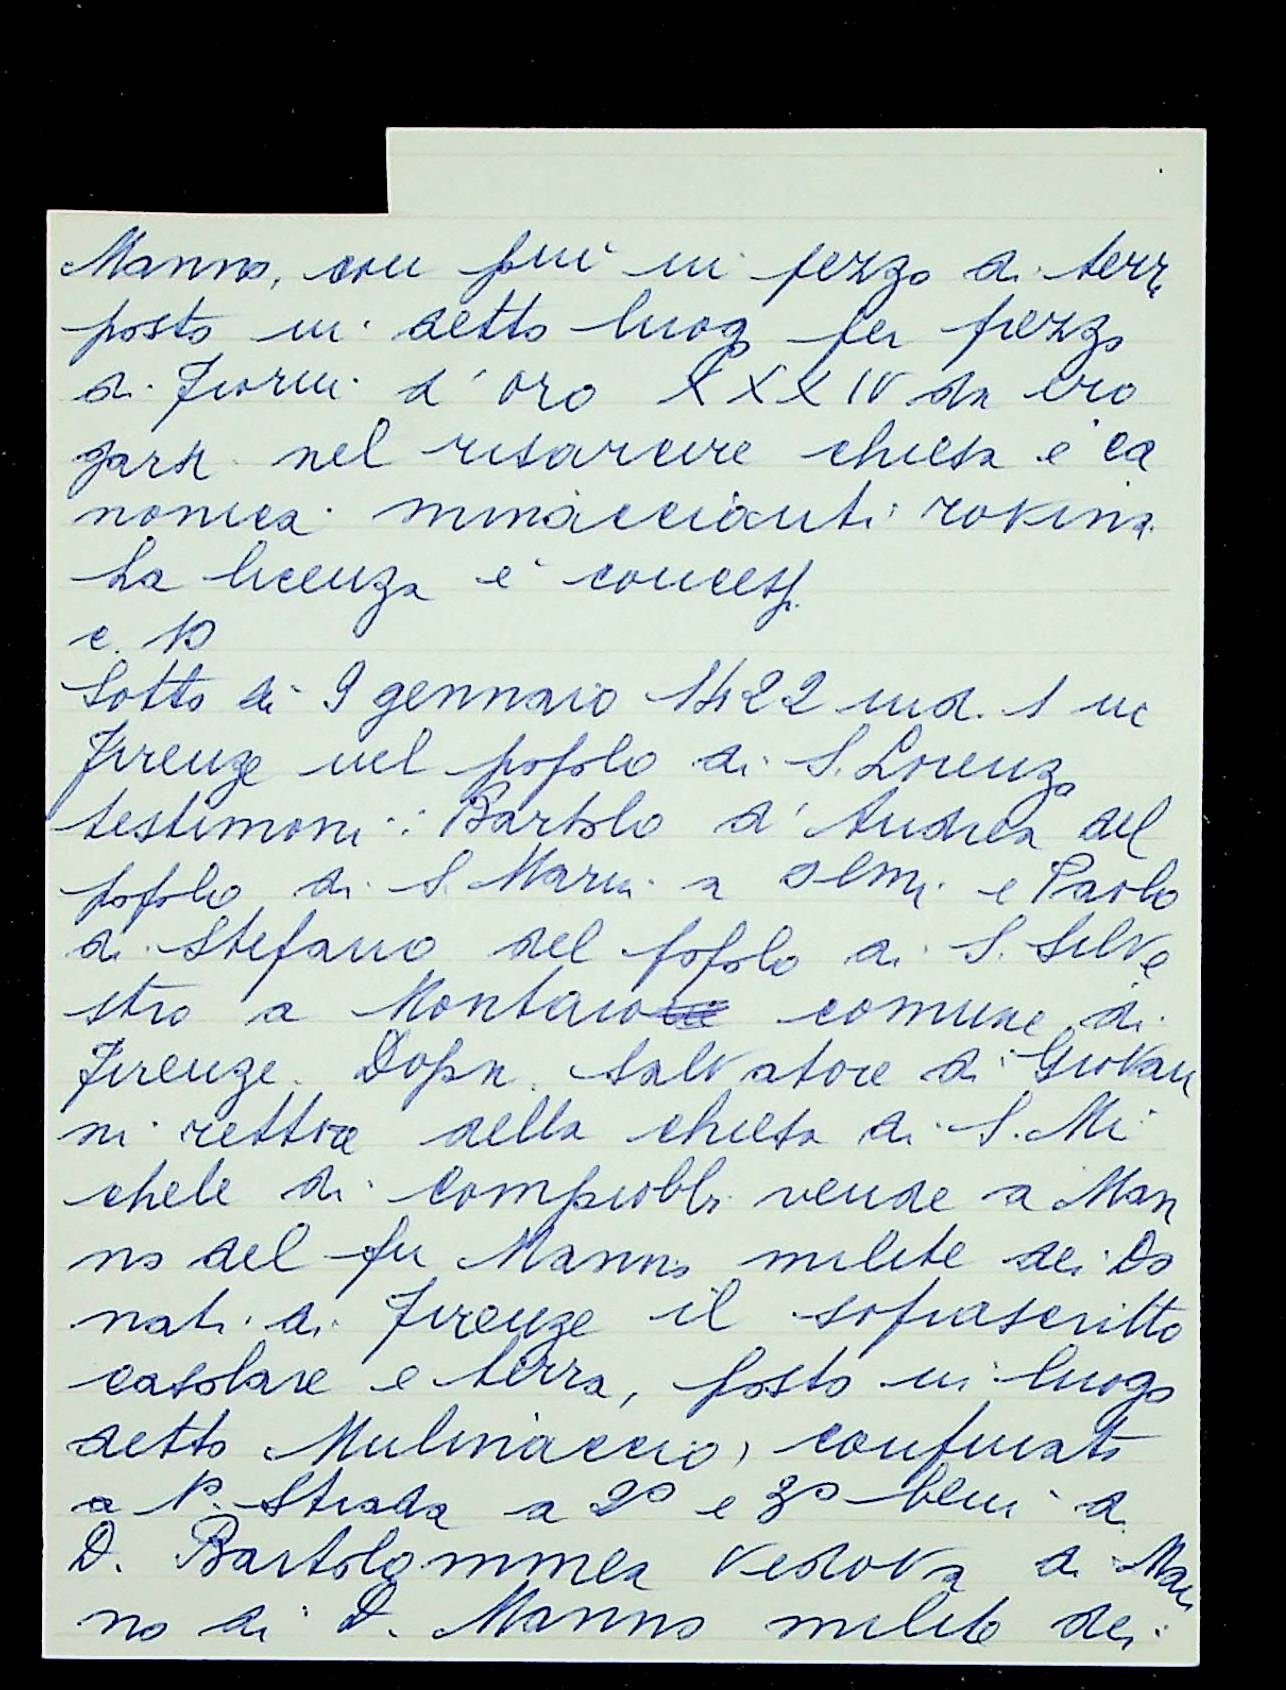 Manno, con più un pezzo di terra
posto in detto luogo per prezzo
di Fiorini d'oro XXXIV da ero
garsi nel risarcire chiesa e ca
nonica minaccianti rovina.
La licenza è concessa.
c. 10
Sotto dì 9 gennaio 1422 ind. 1 in
Firenze nel popolo di S. Lorenzo
testimoni: Bartolo d'Andrea del
popolo di S. Martin a e Paolo
di Stefano del popolo di S. Silve
stro a Montaio comune di
Firenze. Dopn. Salvatore di Giovan
ni rettore della chiesa di S. Mi
chele di Compiobbi vende a Man
no del fu Manno milite dei Do
nati di Firenze il soprascritto
casolare e terra, posto in luogo
detto Mulinaccio, confinato
a 1º Strada a 2º e 3º beni di
D. Bartolommea vedova di Man
no di D. Manno milite dei